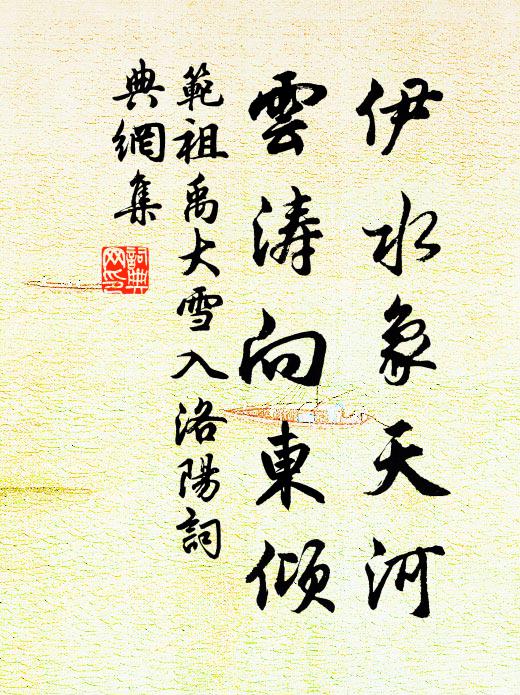 伊水象天河
雲涛向東傾
範祖禹大雪入洛陽詞
典網集
詞典
网印